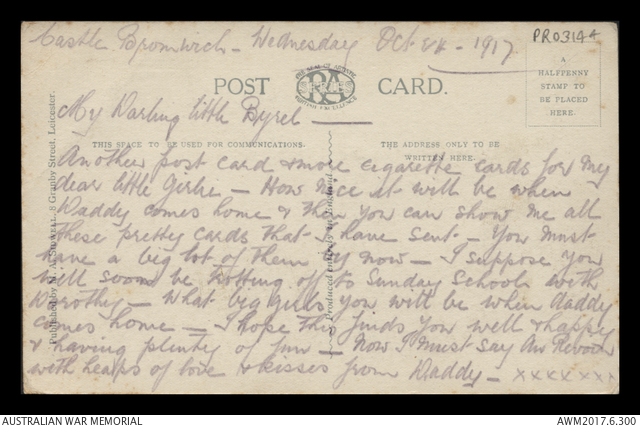 Castle Bromwich - Wednesday Oct 24 - 1917
PR03144
POST CARD.
A
HALFPENNY
STAMP TO
BE PLACED
HERE.
My Darling little Byrel
THIS SPACE TO BE USED FOR COMMUNICATIONS.
THE ADDRESS ONLY TO BE
WRITTEN HERE.
Another post card & more cigarette cards for my
dear little Girlie - How nice it will be when
Daddy comes home & then you can show me all
these pretty cards that I have sent - You must
have a big lot of them by now - I suppose you
will soon be trotting off to Sunday School with
Dorothy - What big girls you will be when daddy
comes home - I hope this finds you well & happy
& having plenty of fun - Now I must say Au Revoir
with heaps of love & kisses from Daddy - xxxxxxx
8 Granby Street, Leicester.
AUSTRALIAN WAR MEMORIAL
AWM2017.6.300